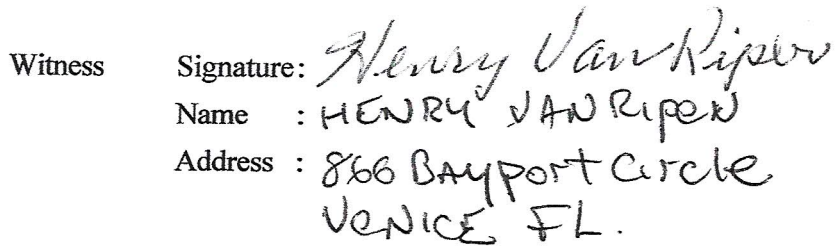 Witness Signature: Henry Van Riper
Name : HENRY VAN RIPER
Address : 866 BAYPORT CIRCLE
VENICE FL.